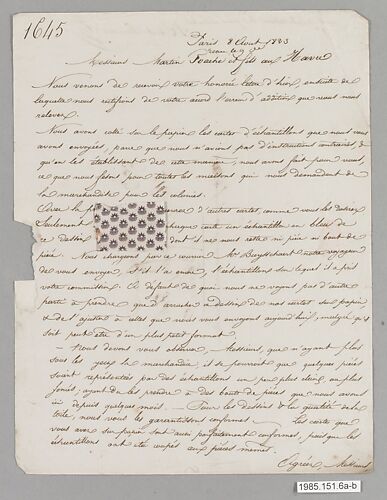 1645
Paris 8 Aout 1823
Messieurs Martin Foache et fils au Havre
Nous venons de recevoir votre honorée lettre d'hier, ensuite de
laquelle nous rectifions de notre accord l'erreur d'addition que vous nous
relevez.
Nous avons collé sur le papier les cartes d'échantillons que nous vous
avons envoyées, parce que nous n'avions pas d'instructions contraires, &
qu'en les établissant de cette manière, nous avons fait pour vous,
ce que nous fesons pour toutes les maisons qui nous demandent de
la marchandise pour les colonies.
d'autres cartes, comme vous les desirez
Seulement chaque carte un échantillon en bleu de
ce dessin dont il ne nous reste ni pièce ni bout de
pièce. Nous chargeons par ce courrier Mr
de vous envoyer s'il l'a encore, l'échantillon sur lequel il a pris
votre commission. A defaut de quoi nous ne voyons pas d'autre
parti à prendre, que d'arracher à dessin de nos cartes sur papier
& de l'ajouter à celles que nous vous envoyons aujourd'hui, malgré qu'il
soit peut être d'un plus petit format.
Nous devons vous observer, Messieurs, que n'ayant plus
sous les yeux la marchandise, il se pourrait que quelques pièces
soient représentées par des échantillons un peu plus clairs ou plus
foncés, ayant dû les prendre à des bouts de pièces que nous avons
ici depuis quelques mois. — Pour les dessins & la qualité de la
toile, nous vous les garantissons conformes — Les cartes que
vous avez sur papier sont aussi parfaitement conformes, puisque les
échantillons ont été coupés aux pièces mêmes.
Agréez, Messieurs
1985.151.6a-b